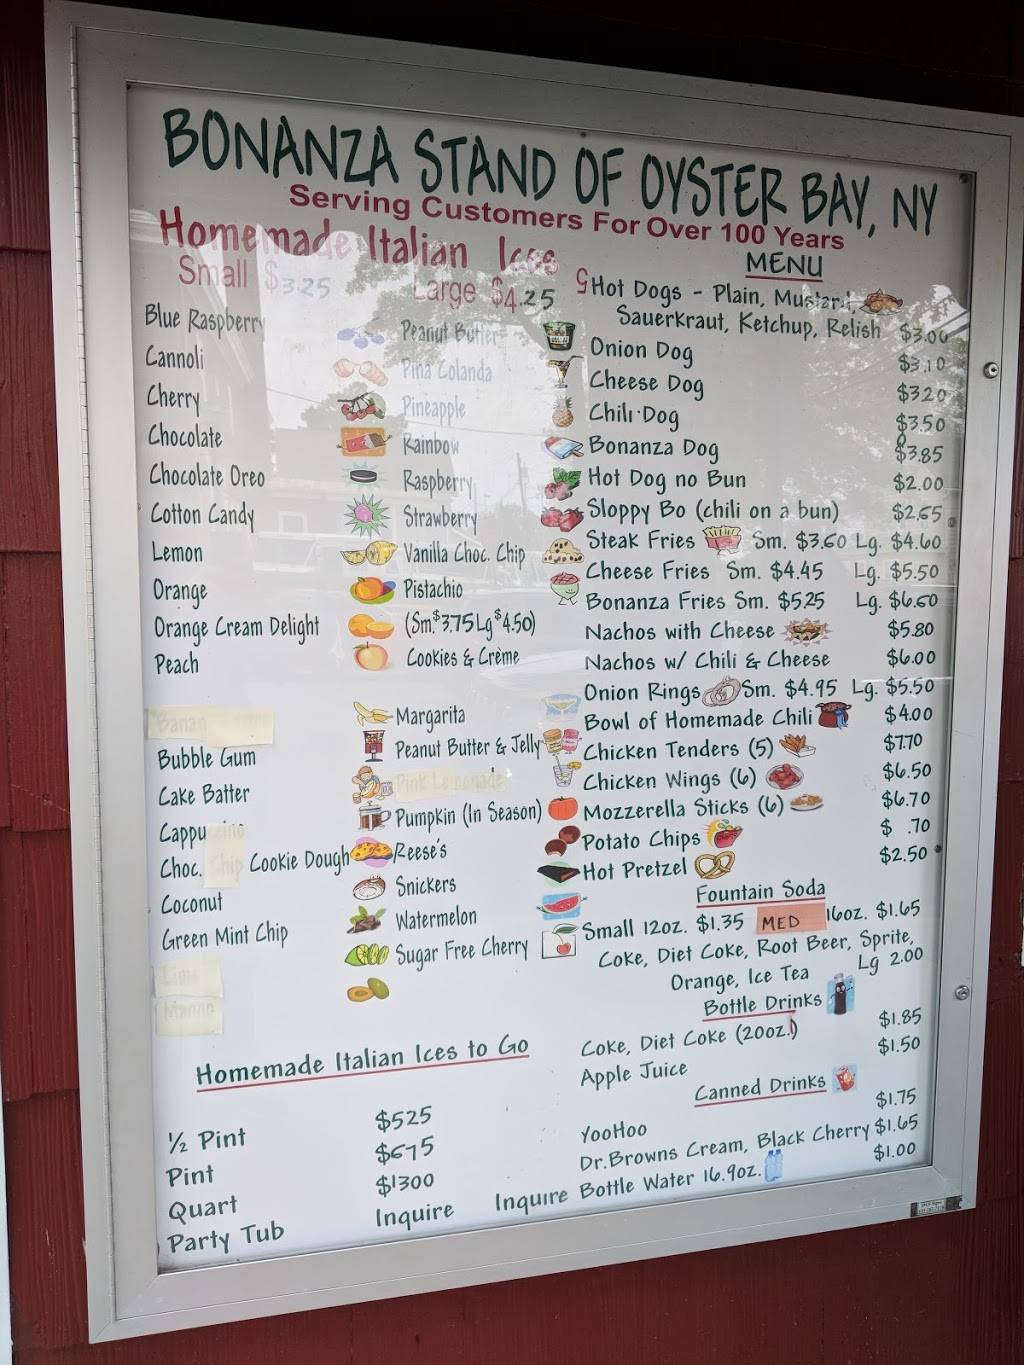 BONANZA STAND OF OYSTER BAY, NY
Serving Customers For Over 100 Years
Homemade Italian Ices
Small $3.25 Large $4.25
Blue Raspberry
Cannoli
Cherry
Chocolate
Chocolate Oreo
Cotton Candy
Lemon
Orange
Orange Cream Delight
Peach
Banan
Bubble Gum
Cake Batter
Cappuccino
Choc. Chip Cookie Dough
Coconut
Green Mint Chip
Lime
Mango
Peanut Butter
Pina Colanda
Pineapple
Rainbow
Raspberry
Strawberry
Vanilla Choc. Chip
Pistachio
(Sm.$3.75 Lg$4.50)
Cookies & Crème
Margarita
Peanut Butter & Jelly
Pink Lemonade
Pumpkin (In Season)
Reese's
Snickers
Watermelon
Sugar Free Cherry
Homemade Italian Ices to Go
½ Pint $525
Pint $675
Quart $1300
Party Tub Inquire Inquire
MENU
Hot Dogs - Plain, Mustard,
Sauerkraut, Ketchup, Relish $3.00
Onion Dog $3.10
Cheese Dog $3.20
Chili Dog $3.50
Bonanza Dog $3.85
Hot Dog no Bun $2.00
Sloppy Bo (chili on a bun) $2.65
Steak Fries Sm. $3.60 Lg. $4.60
Cheese Fries Sm. $4.45 Lg. $5.50
Bonanza Fries Sm. $5.25 Lg. $6.50
Nachos with Cheese $5.80
Nachos w/ Chili & Cheese $6.00
Onion Rings Sm. $4.95 Lg. $5.50
Bowl of Homemade Chili $4.00
Chicken Tenders (5) $7.70
Chicken Wings (6) $6.50
Mozzerella Sticks (6) $6.70
Potato Chips $ .70
Hot Pretzel $2.50
Fountain Soda
Small 12oz. $1.35 MED 16oz. $1.65
Coke, Diet Coke, Root Beer, Sprite,
Orange, Ice Tea Lg 2.00
Bottle Drinks
Coke, Diet Coke (20oz.) $1.85
Apple Juice $1.50
Canned Drinks
YooHoo $1.75
Dr.Browns Cream, Black Cherry $1.65
Bottle Water 16.9oz. $1.00